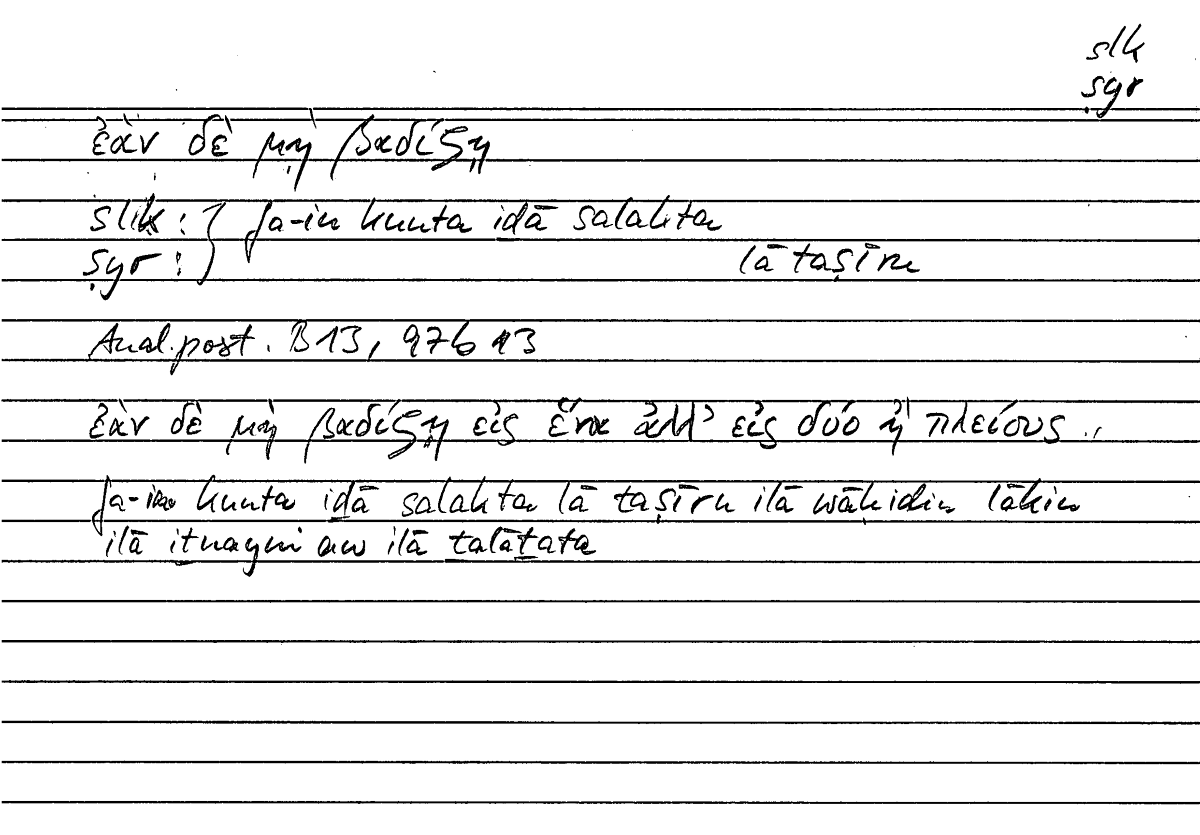 slk
ṣyr
ἐὰν δὲ μὴ βαδίζῃ
slk : } fa-in kunta iḏā salakta
ṣyr : lā taṣīru
Anal. post. B 13, 97b 13
ἐὰν δὲ μὴ βαδίζῃ εἰς ἕνα ἀλλ’ εἰς δύο ἢ πλείους ..
fa-in kunta iḏā salakta lā taṣīru ilā wāḥidin lākin
ilā iṯnayni aw ilā ṯalāṯata